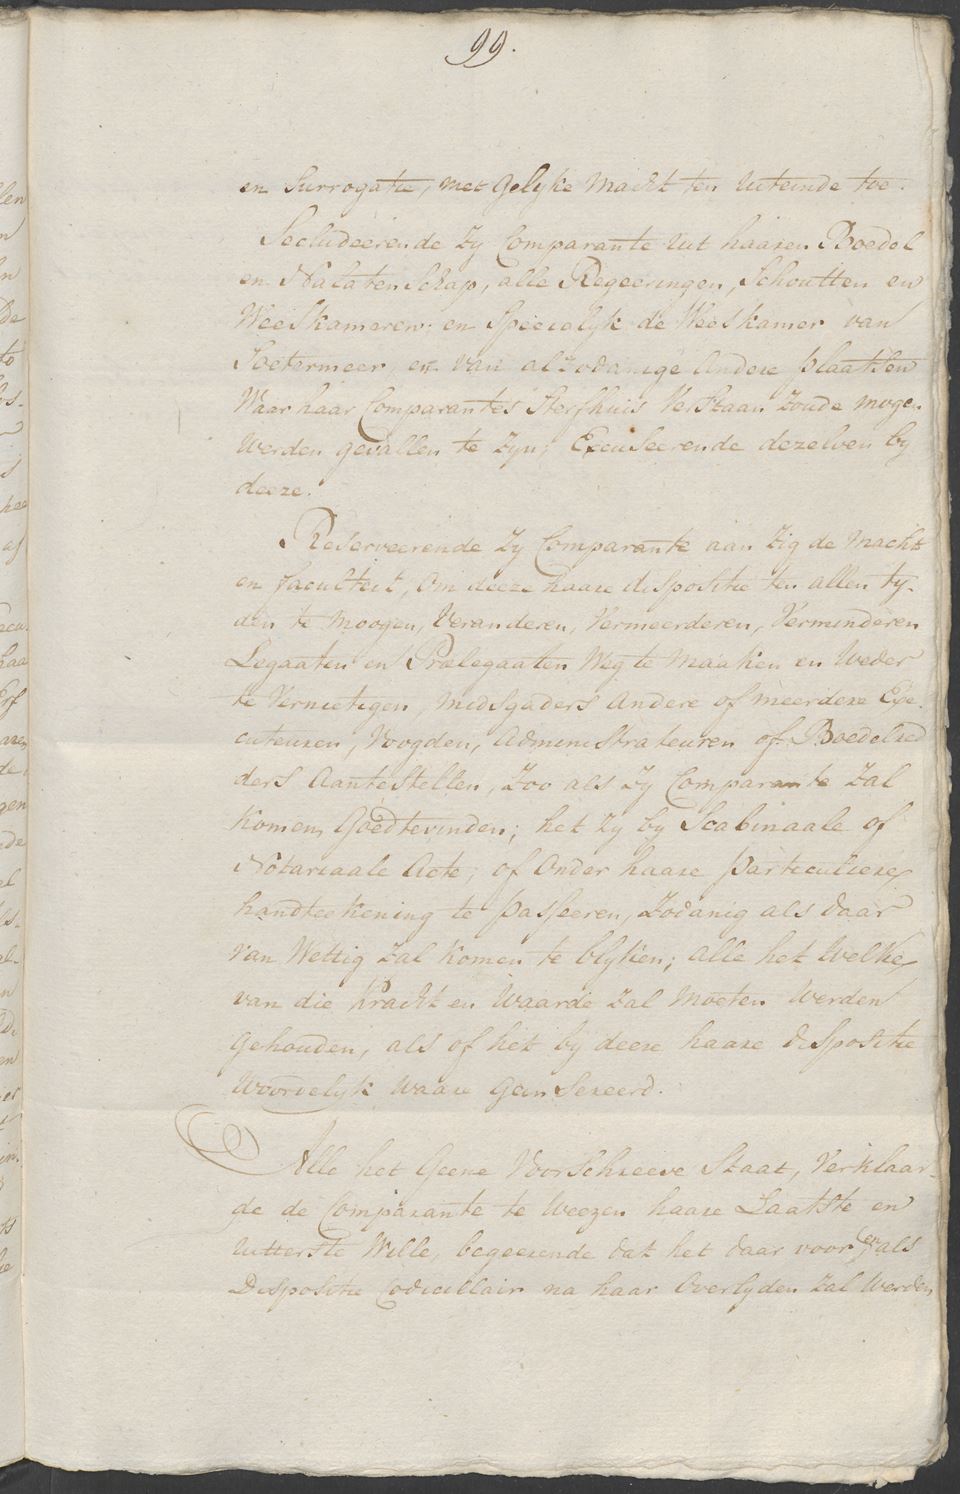 99.
en Surrogatie, met Gelyke Macht ten uiteinde toe.
Secludeerende Zy Comparante uit haaren Boedel
en Nalatenschap, alle Regeeringen, Schoutten en
Weeskameren, en Specialyk de Weeskamer van
Soetermeer, en van al zodanige Andere plaatsen
Waar haar Comparantes Sterfhuis Verstaan Zoude mogen
Werden gevallen te zyn; Excuseerende dezelven by
deeze.
Reserveerende Zy Comparante aan Zig de Macht
en faculteit, om deeze haare dispositie ten allen ty-
den te Moogen, Veranderen, Vermeerderen, Verminderen
Legaaten en Prælegaaten Weg te Maaken en Weder
te Vernietigen, midsgaders Andere of meerdere Exe-
cuteuren, Voogden, Administrateuren of Boedelred
ders Aantestellen, Zoo als Zy Comparante Zal
Komen Goedtevinden; het zy by Scabinaale of
Notariaale Acte, of Onder haare particuliere
handteekening te passeeren, Zodanig als daar
van Wettig Zal Komen te blyken; alle het Welke
van die Kracht en Waarde Zal Moeten Werden
Gehouden, als of het by deese haare dispositie
Woordelyk Waare Geinsereerd.
Alle het Geene Voorschreeve Staat, Verklaar-
de de Comparante te Weezen haare Laatste en
Uitterste Wille, begeerende dat het daar voor, en als
Dispositie Codicillair na haar Overlyden Zal Werden